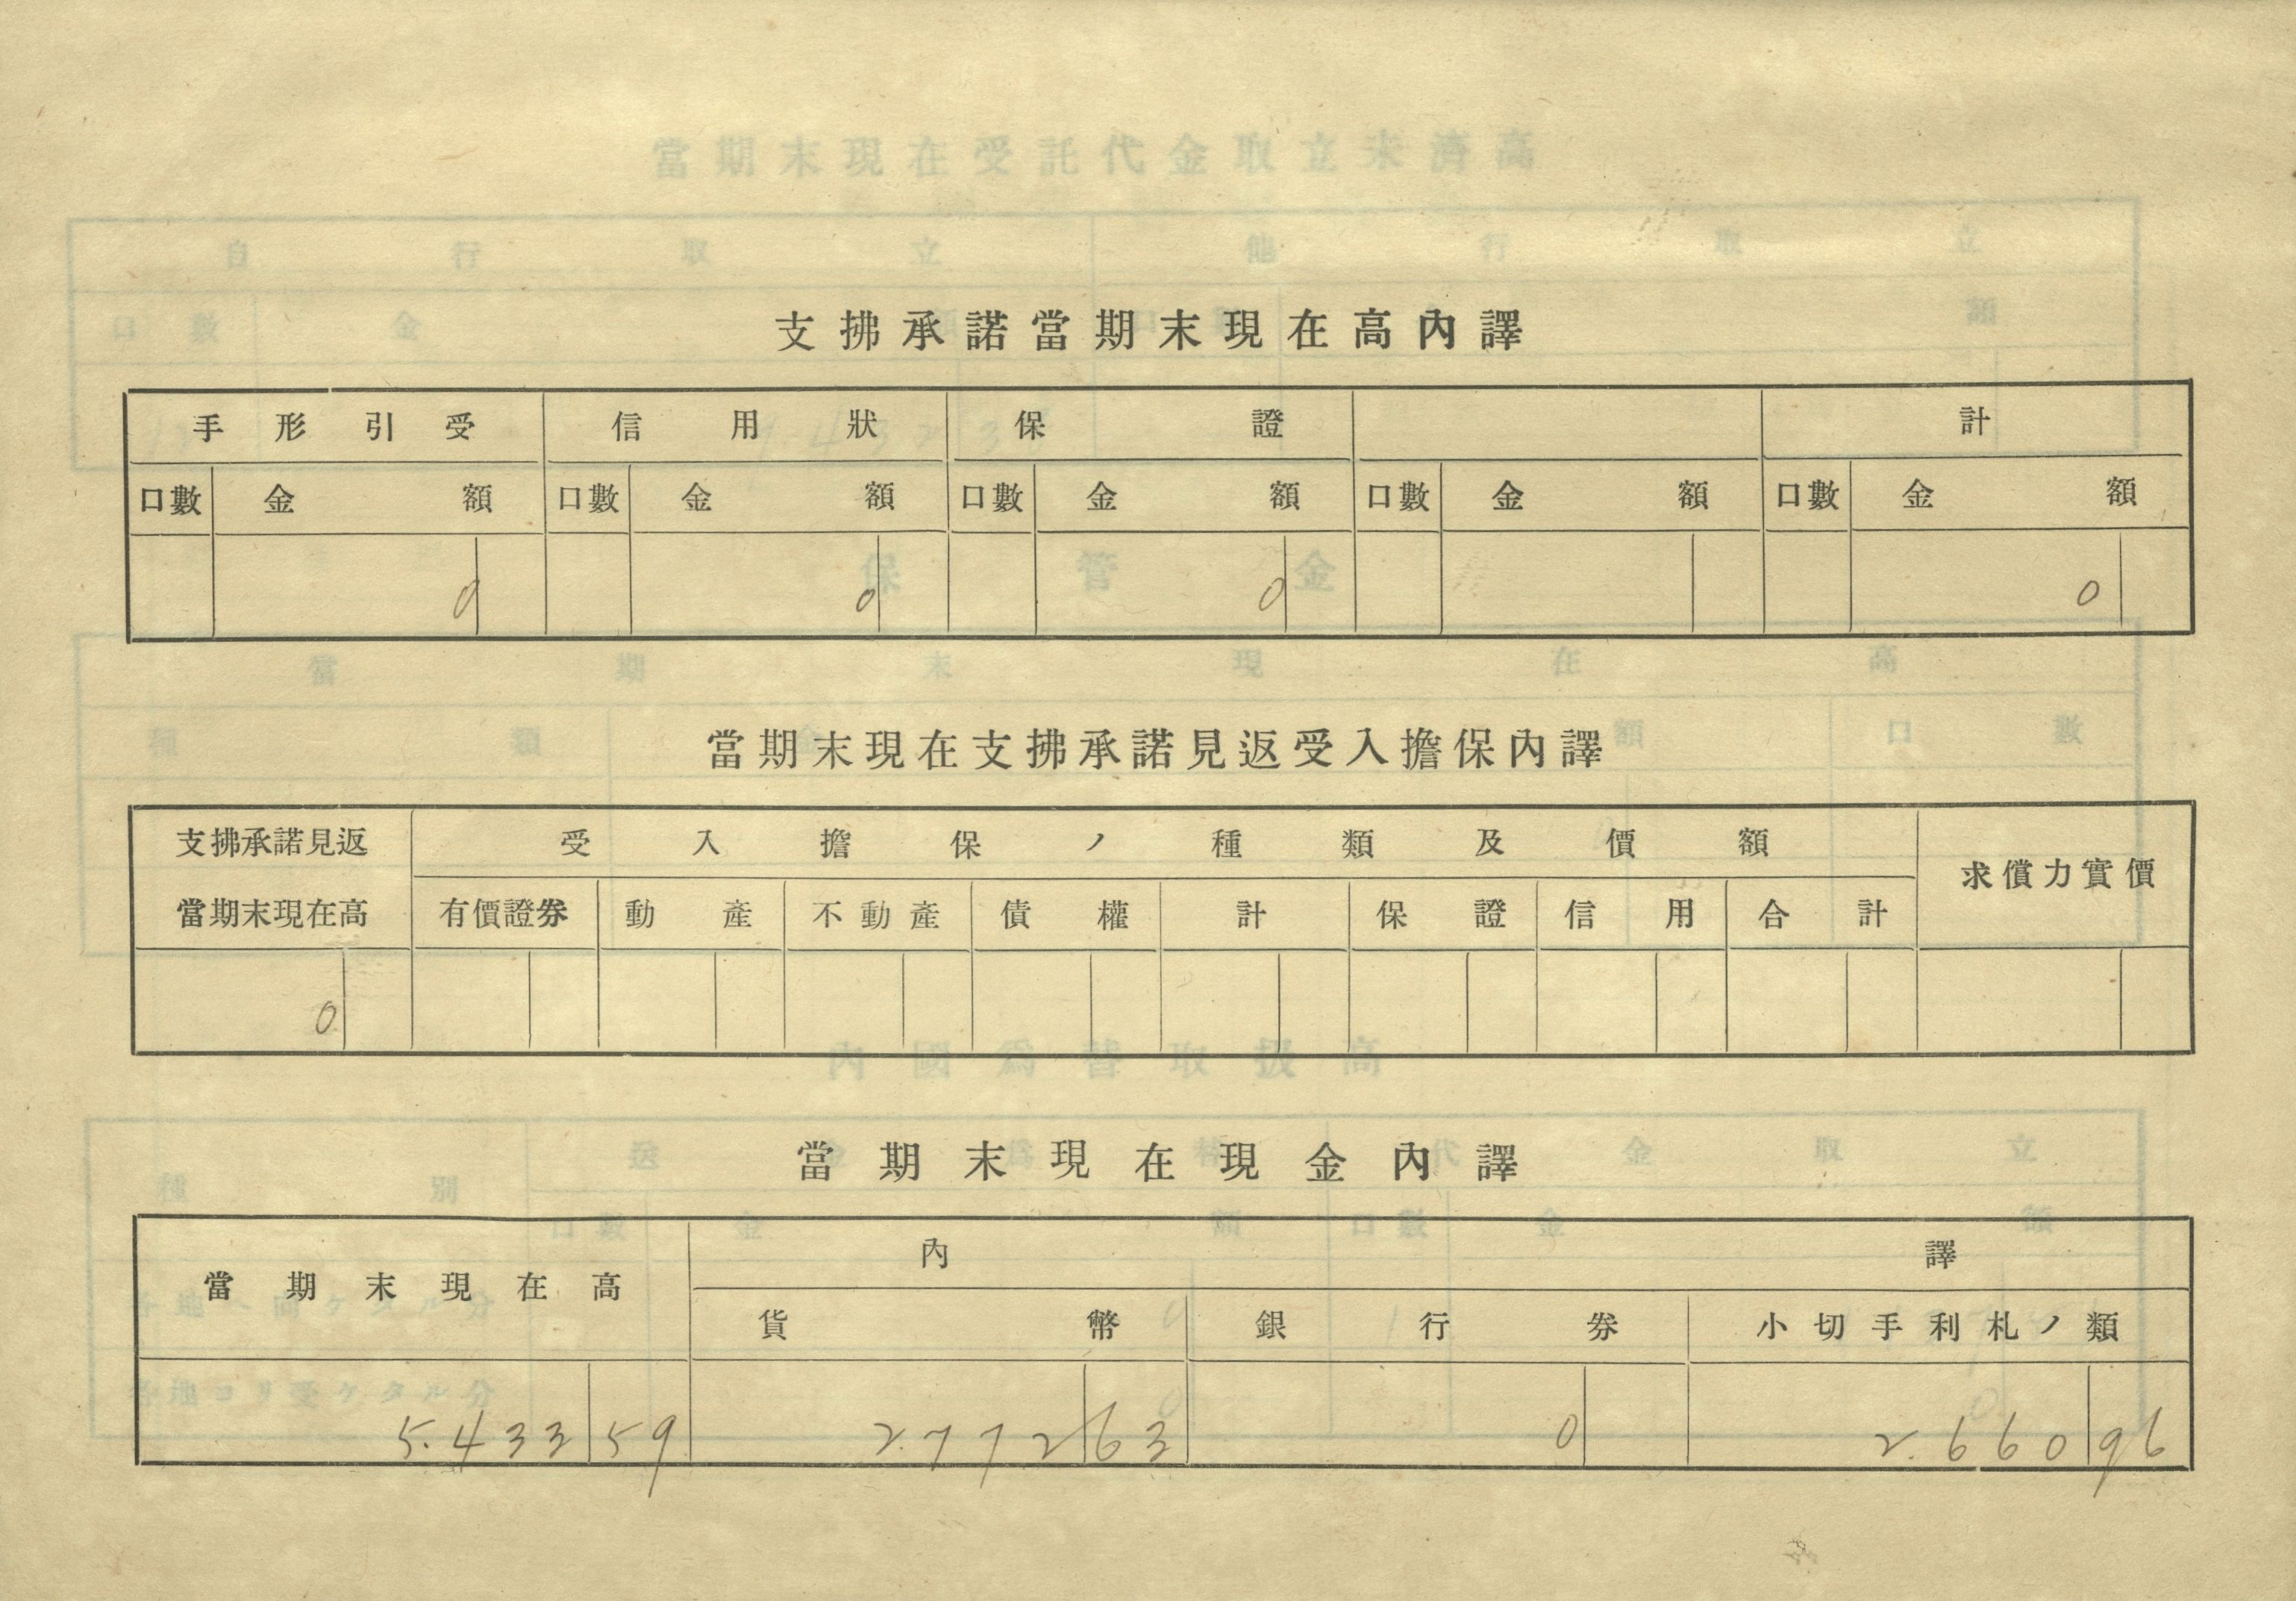 支拂承諾當期末現在高內譯
手形引受 信用狀 保證 計
口數 金額 口數 金額 口數 金額 口數 金額 口數 金額
0 0 0 0
當期末現在支拂承諾見返受入擔保內譯
支拂承諾見返 受入擔保ノ種類及價額 求償力實價
當期末現在高 有價證券 動產 不動產 債權 計 保證 信用 合計
0
當期末現在現金內譯
當期末現在高 內譯
貨幣 銀行券 小切手利札ノ類
5.433 59 2.772 63 0 2.660 96